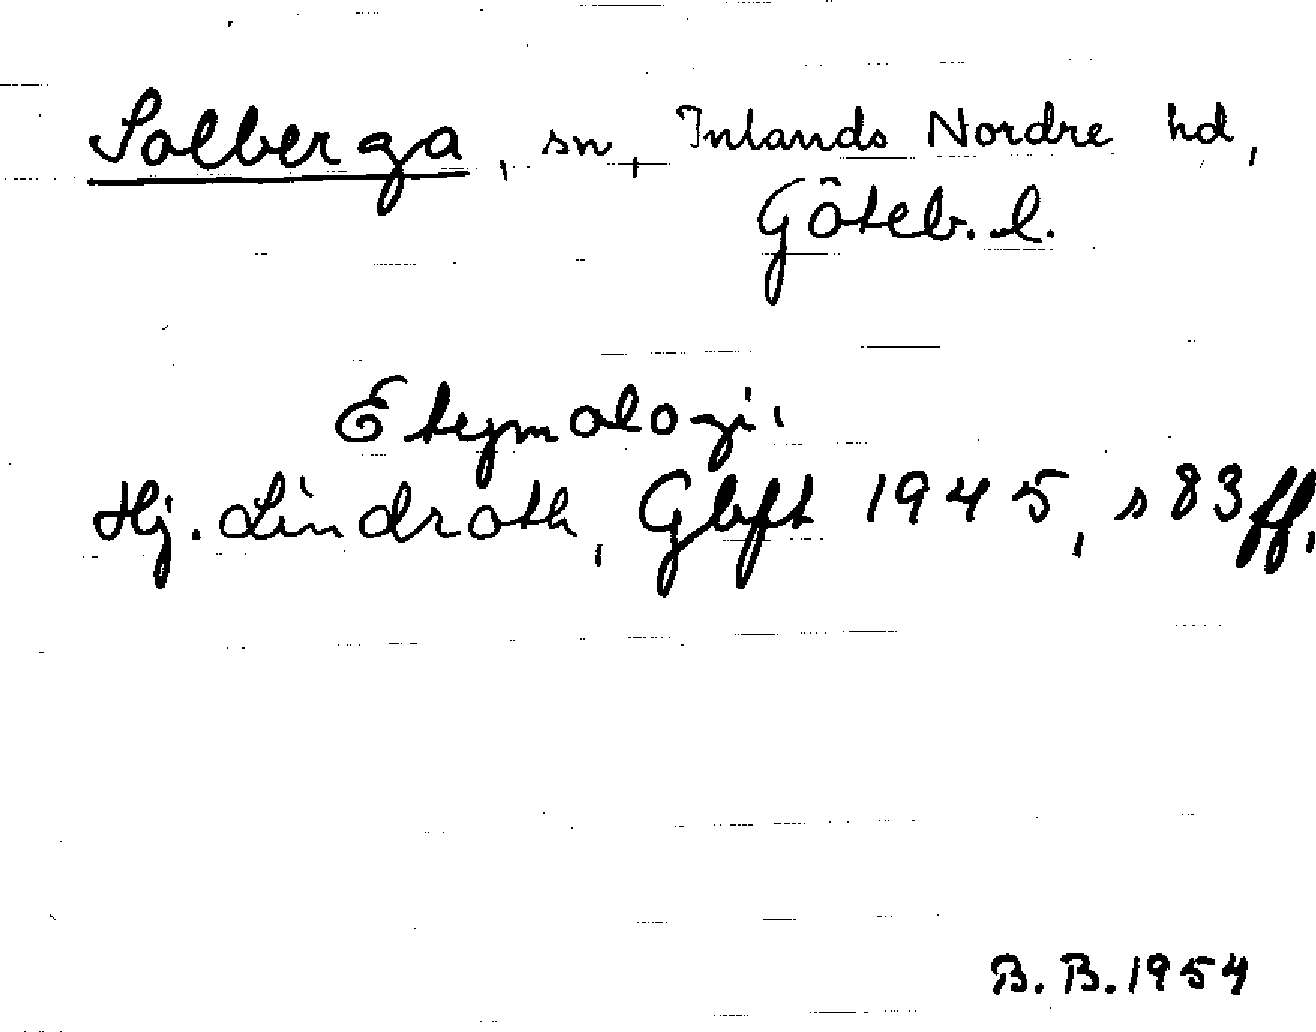 Solberga, sn, Inlands Nordre hd,
Göteb. l.
Etymologi.
Hj. Lindroth, Gbft 1945, s 83 ff.
B. B. 1954